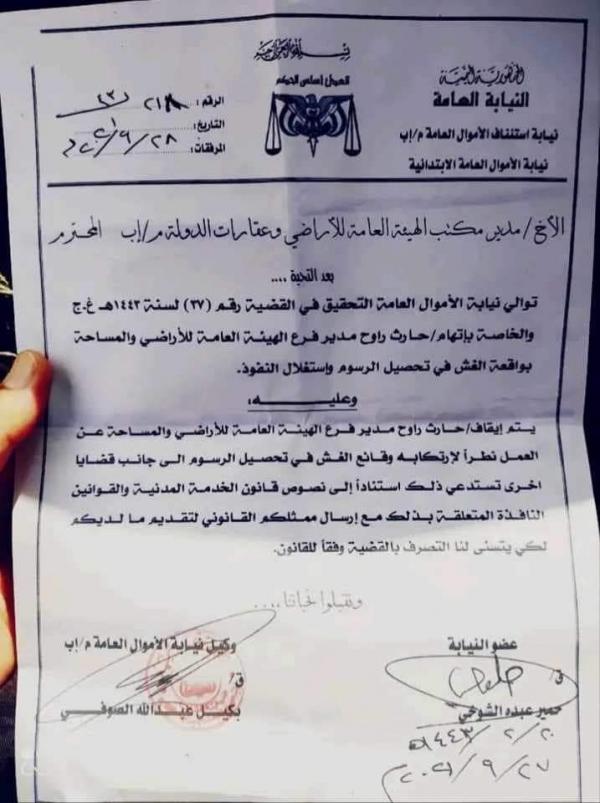 بسم الله الرحمن الرحيم
العدل أساس الحكم
الجمهورية اليمنية
النيابة العامة
نيابة استئناف الأموال العامة م/إب
نيابة الأموال العامة الابتدائية
الرقم: ٢١٨
التاريخ: ٢٨/٩/٢٠٢١م
المرفقات:
الأخ/ مدير مكتب الهيئة العامة للأراضي وعقارات الدولة م/إب المحترم
بعد التحية ....
توالي نيابة الأموال العامة التحقيق في القضية رقم (٣٧) لسنة ١٤٤٣هـ غ.ج
والخاصة بإتهام/حارث راوح مدير فرع الهيئة العامة للأراضي والمساحة
بواقعة الغش في تحصيل الرسوم وإستغلال النفوذ.
وعليـــــه:
يتم إيقاف/حارث راوح مدير فرع الهيئة العامة للأراضي والمساحة عن
العمل نظراً لإرتكابه وقائع الغش في تحصيل الرسوم الى جانب قضايا
اخرى تستدعي ذلك استناداً إلى نصوص قانون الخدمة المدنية والقوانين
النافذة المتعلقة بذلك مع إرسال ممثلكم القانوني لتقديم ما لديكم
لكي يتسنى لنا التصرف بالقضية وفقاً للقانون.
وتقبلوا تحياتنا ....
عضو النيابة
ق/
حمير عبده الشوخي
٢٠/٢/١٤٤٣هـ
٢٧/٩/٢٠٢١م
وكيل نيابة الأموال العامة م/إب
ق/
بكيل عبدالله الصوفي